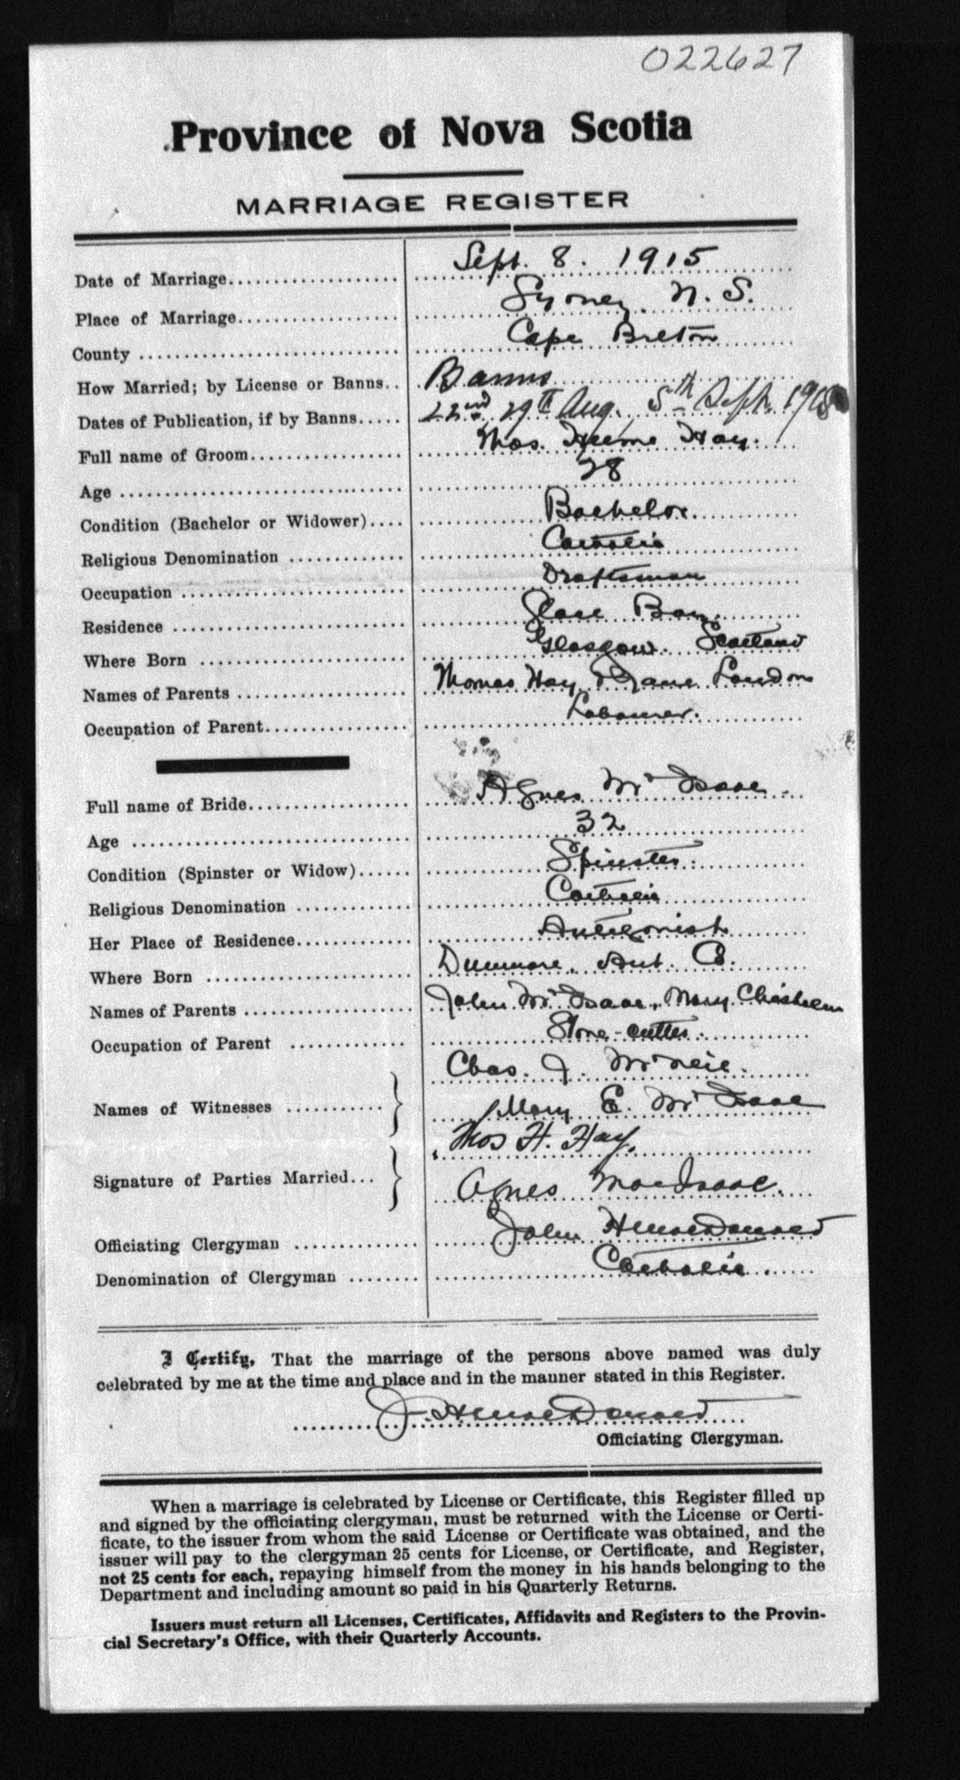 022627
Province of Nova Scotia
MARRIAGE REGISTER
Date of Marriage Sept. 8. 1915
Place of Marriage Sydney, N. S.
County Cape Breton
How Married; by License or Banns Banns
Dates of Publication, if by Banns 22nd, 29th Aug. 5th Sept. 1915
Full name of Groom Thos. Hume Hay.
Age 28
Condition (Bachelor or Widower) Bachelor.
Religious Denomination Catholic
Occupation Draftsman
Residence Glace Bay.
Where Born Glasgow. Scotland
Names of Parents Thomas Hay & Jane Loudon
Occupation of Parent Labourer.
Full name of Bride Agnes McIsaac.
Age 32
Condition (Spinster or Widow) Spinster.
Religious Denomination Catholic
Her Place of Residence Antigonish
Where Born Dunmore, Ant. Co.
Names of Parents John McIsaac, Mary Chisholm
Occupation of Parent Stone-cutter.
Names of Witnesses } Chas. J. McNeil.
Mary E. McIsaac
Signature of Parties Married } Thos H. Hay.
Agnes MacIsaac.
Officiating Clergyman John H MacDonald
Denomination of Clergyman Catholic.
I Certify, That the marriage of the persons above named was duly
celebrated by me at the time and place and in the manner stated in this Register.
J. H MacDonald
Officiating Clergyman.
When a marriage is celebrated by License or Certificate, this Register filled up
and signed by the officiating clergyman, must be returned with the License or Certi-
ficate, to the issuer from whom the said License or Certificate was obtained, and the
issuer will pay to the clergyman 25 cents for License, or Certificate, and Register,
not 25 cents for each, repaying himself from the money in his hands belonging to the
Department and including amount so paid in his Quarterly Returns.
Issuers must return all Licenses, Certificates, Affidavits and Registers to the Provin-
cial Secretary's Office, with their Quarterly Accounts.